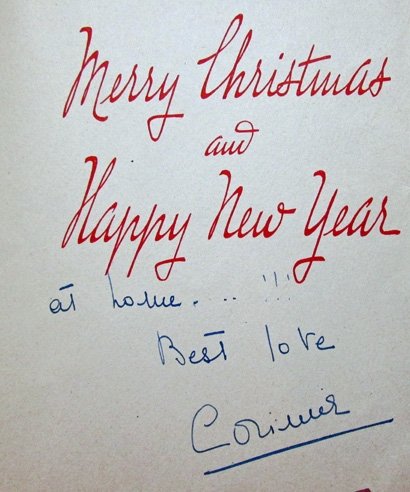 Merry Christmas
and
Happy New Year
at home. .. !!!
Best love